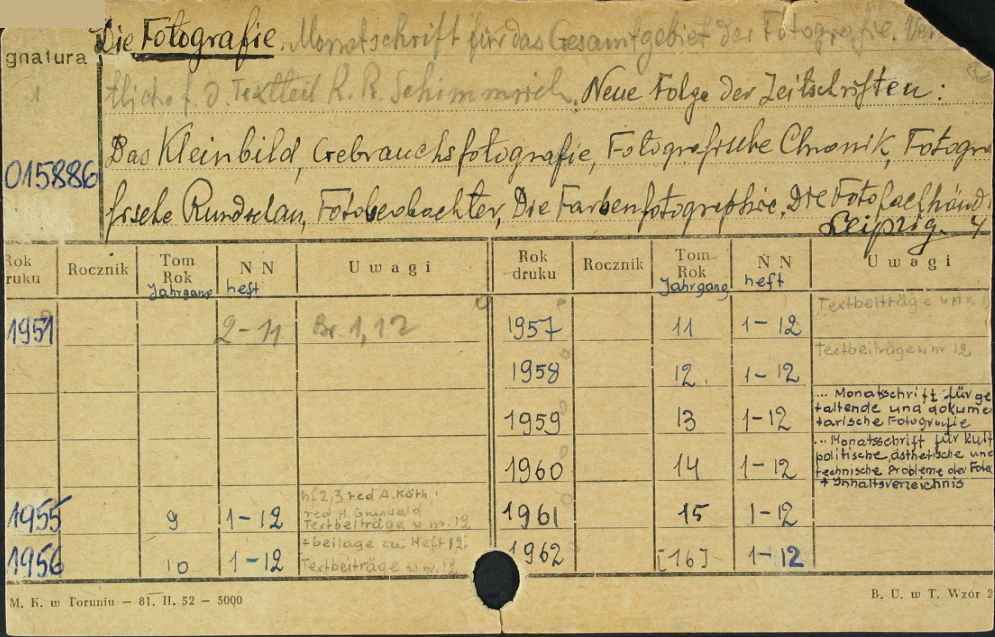 Die Fotografie. Monatschrift für das Gesamtgebiet der Fotografie. Ver
gnatura
tlich f. d. Textteil R. R. Schimmrich. Neue Folge der Zeitschriften:
015886
Das Kleinbild, Gebrauchsfotografie, Fotografische Chronik, Fotogra
fische Rundschau, Fotobeobachter, Die Farbenfotographie, Die Fotofachhänd
Leipzig. 4
Rok druku Rocznik Tom Rok Jahrgang N N heft Uwagi Rok druku Rocznik Tom Rok Jahrgang N N heft Uwagi
1951 2-11 Br. 1, 12
1957 11 1-12 Textbeiträge
1958 12. 1-12 Textbeiträge w nr 12
1959 13 1-12 ... Monatsschrift für ge
taltende und dokume
tarische Fotografie
1960 14 1-12 ... Monatsschrift für kult
politische, ästhetische und
technische Probleme der Foto
+ Inhaltsverzeichnis
1955 9 1-12 h. 2, 3 red A. Köth.
red H. Grunwald
Textbeiträge w nr. 12
1961 15 1-12
1956 10 1-12 + beilage zu Heft 12.
Textbeiträge w nr. 12
1962 [16] 1-12
M. K. w Toruniu — 81. II. 52 — 5000
B. U. w T. Wzór 2